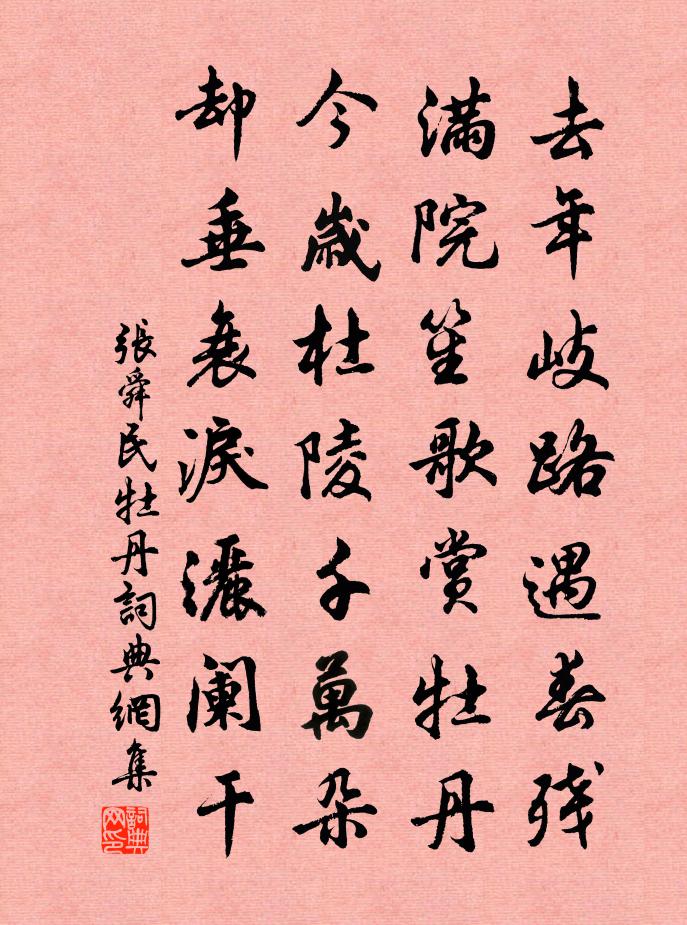 去年歧路遇春残
满院笙歌赏牡丹
今歲杜陵千萬朵
却垂衰淚灑阑干
張舜民牡丹詞典網集
詞典网印